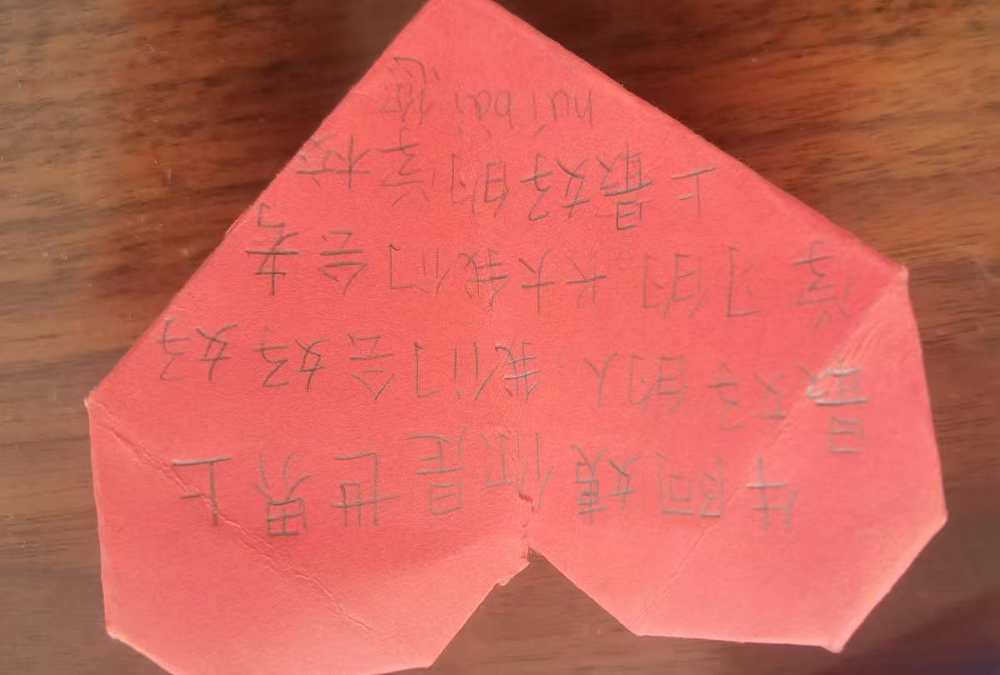 牛阿姨你是世界上
最好的人，我们会好好
学习的，长大我们会考
上最好的学校
huí bào 您